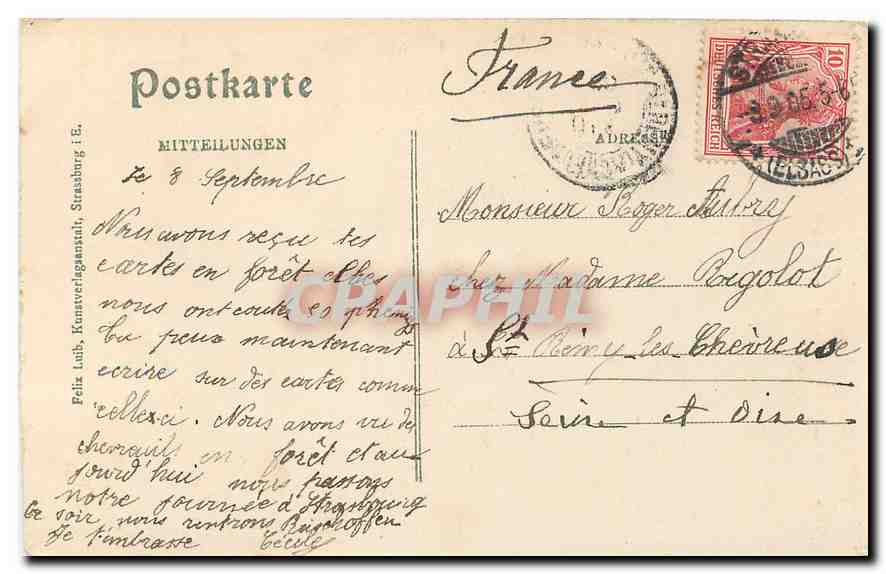 Postkarte
MITTEILUNGEN
Felix Luib, Kunstverlagsanstalt, Strassburg i E.
Le 8 Septembre
Nous avons reçu tes
cartes en forêt elles
nous ont
Tu peux maintenant
ecrire sur des cartes comme
celle-ci. Nous avons vu des
chevreuils en forêt et au
jourd'hui nous passons
notre journée à Strasbourg
Ce soir nous rentrons Reischoffen
Je t'embrasse Cécile
France
ADRESSE
10
DEUTSCHES REICH
8.9.06.5-6
(ELSASS)
Monsieur Roger Aubry
chez Madame Rigolot
à St Rémy les Chevreuse
Seine et Oise
CPAPHIL